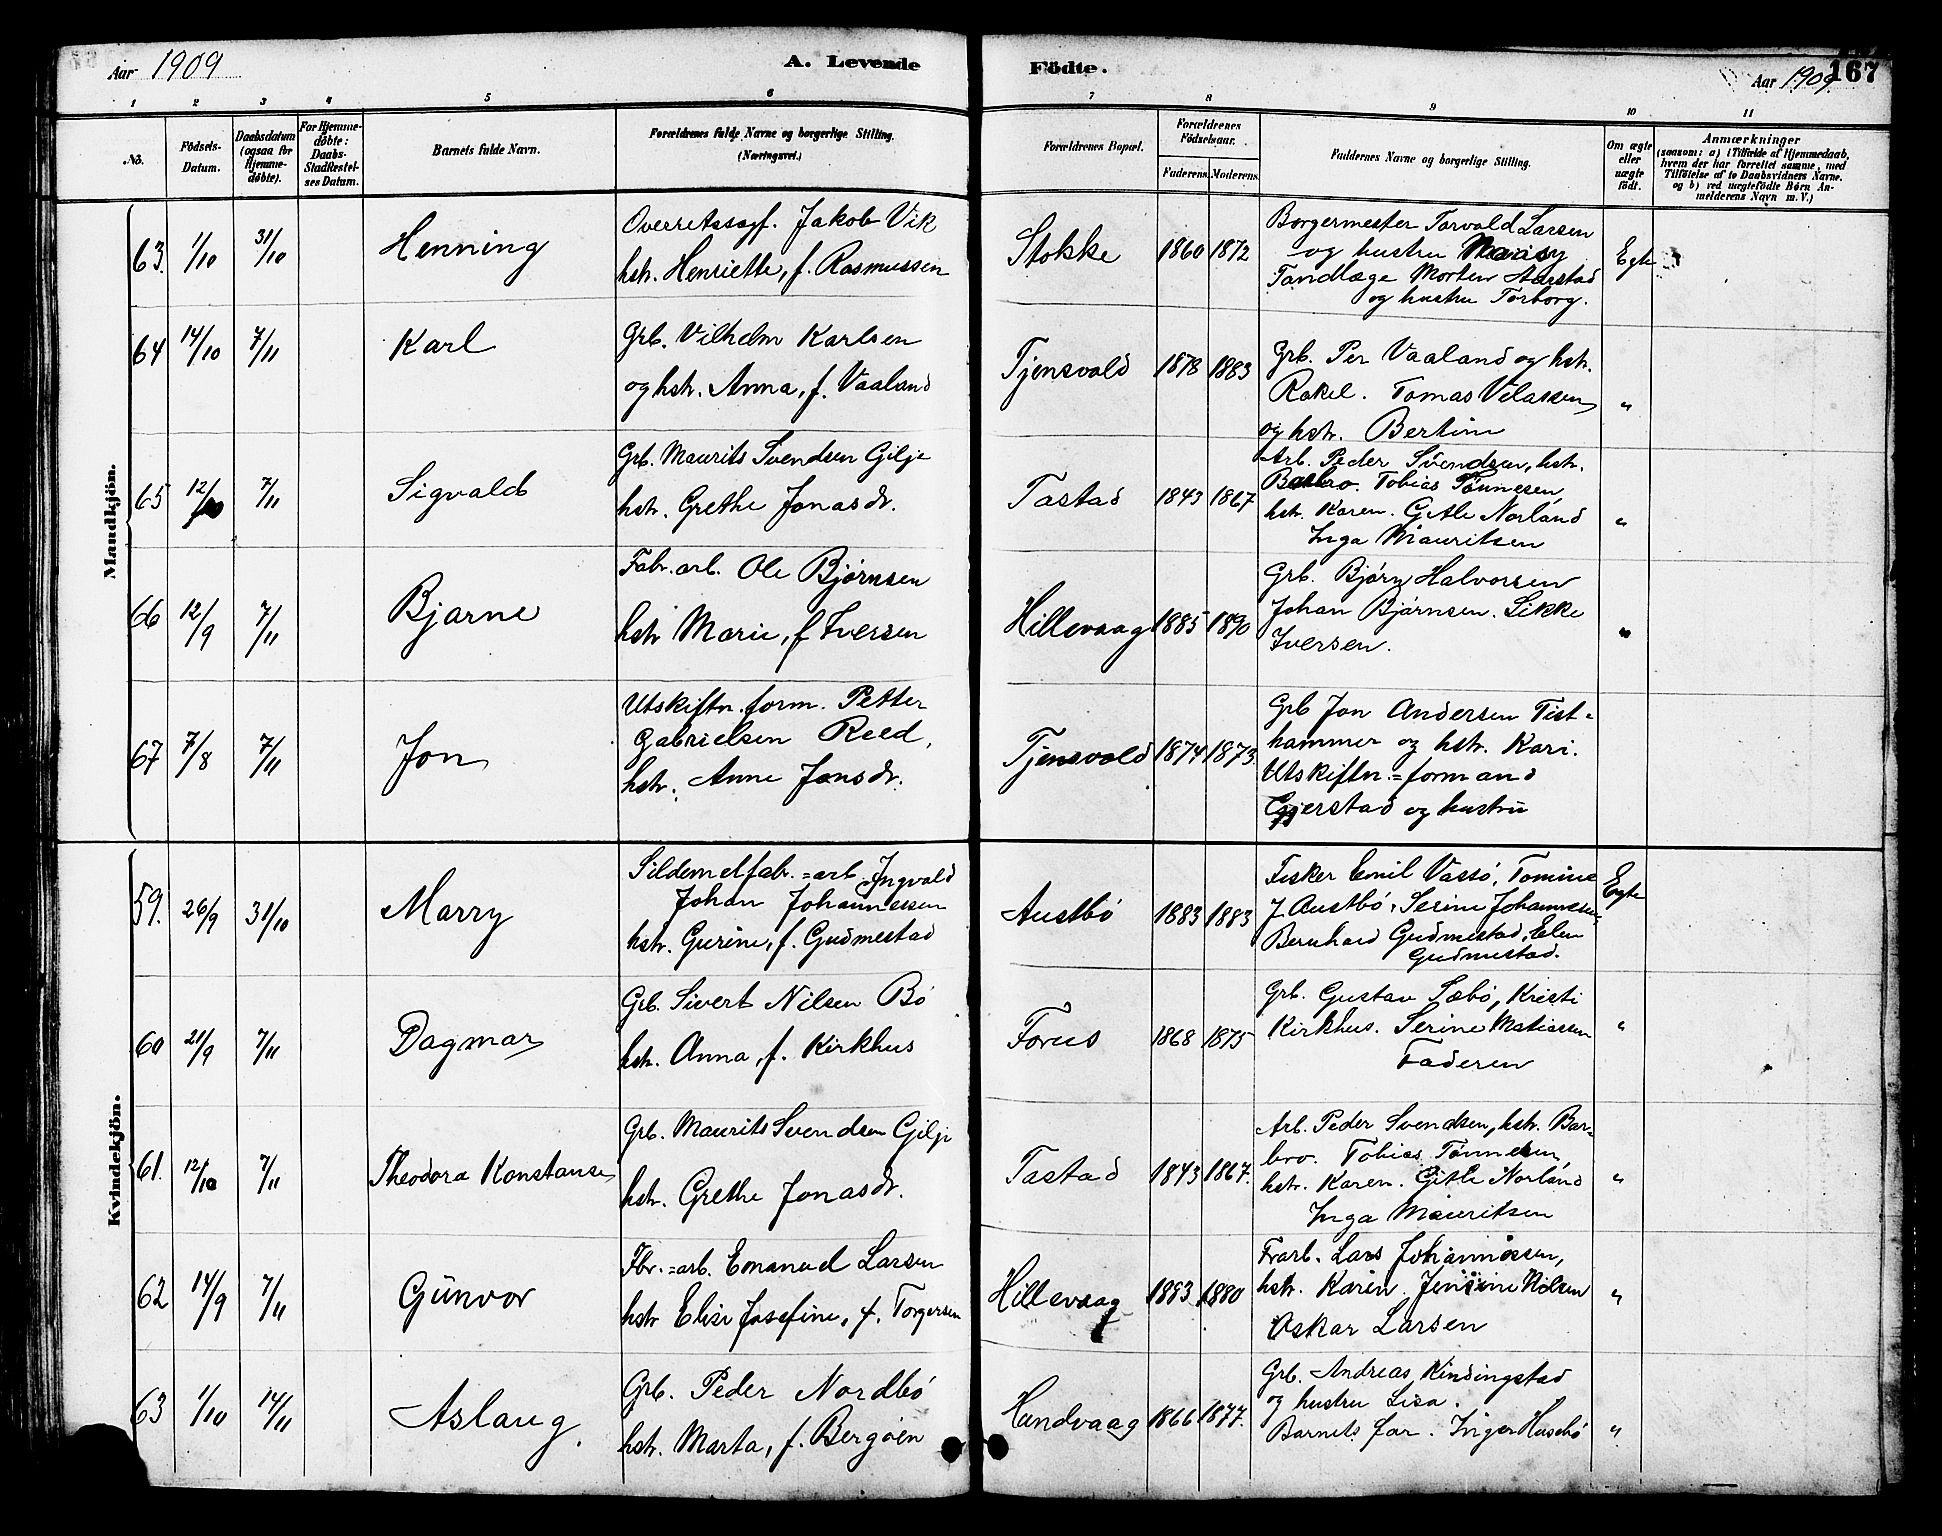 Aar 1909
A. Levende
Födte.
Aar 1909
167
1 2 3 4 5 6 7 8 9 10 11
No.
Födsels-
Datum.
Daabsdatum
(ogsaa for
Hjemme-
döbte).
For Hjemme-
döbte:
Daabs-
Stadfæstel-
ses Datum.
Barnets fulde Navn.
Forældrenes fulde Navne og borgerlige Stilling.
(Næringsvei.)
Forældrenes Bopæl.
Forældrenes
Födselsaar.
Faderens. Moderens.
Faddernes Navne og borgerlige Stilling.
Om ægte
eller
uægte
födt.
Anmærkninger
(saasom: a) i Tilfælde af Hjemmedaab,
hvem der har forrettet samme, med
Tilföielse af to Daabsvidners Navne.
og b) ved uægtefödte Börn An-
melderens Navn m. V.)
Mandkjön.
63. 1/10 31/10 Henning
Overretssagf. Jakob Vik
hstr. Henriette, f. Rasmussen
Stokke 1860 1872
Borgermester Torvald Larsen
og hustru
Tandlæge Morten Aarstad
og hustru Torborg.
Egte
64 14/10 7/11 Karl
Grb. Vilhelm Karlsen
og hstr. Anna, f. Vaaland
Tjensvold 1878 1883
Grb. Per Vaaland og hstr.
Rakel. Tomas Velassen
og hstr. Bertine
"
65 12/10 7/11 Sigvald
Grb. Maurits Svendsen Gilje
hstr. Grethe Jonasdr.
Tastad 1843 1867
Arb. Peder Svendsen, hstr.
Barbro. Tobias Tönnesen,
hstr. Karen. Gitle Norland
Inga Mauritsen
"
66 12/9 7/11 Bjarne
Fabr. arb. Ole Bjørnsen
hstr Marie, f Iversen
Hillevaag 1885 1890
Grb. Bjørn Halvorsen
Johan Bjørnsen. Sikke
Iversen.
"
67 7/8 7/11 Jon
Utskiftn. form. Petter
Gabrielsen Reed,
hstr. Anne Jonsdr.
Tjensvold 1874 1873.
Grb Jon Andersen Tist-
hammer og hstr. Kari.
Utskiftn.=formand
Gjerstad og hustru
Kvindekjön.
59. 26/9 31/10 Marry
Sildemelfabr.=arb. Ingvald
Johan Johannessen
hstr. Gurine, f. Gudmestad
Austbö 1883 1883
Fisker Emil Vassö, Tomine
J. Austbö, Serine Johannesen
Bernhard Gudmestad, Elen
Gudmestad.
Egte
60 21/9 7/11 Dagmar
Grb. Sivert Nilsen Bö
hstr. Anna, f. Kirkhus
Forus 1868 1875
Grb. Gustav Sæbö, Kristi
Kirkhus. Serine Matiassen
Faderen
"
61. 12/10 7/11 Theodora Konstanse
Grb. Maurits Svendsen Gilje
hstr. Grethe Jonasdr.
Tastad 1843 1867.
Arb. Peder Svendsen, hstr. Bar-
bro. Tobias Tönnesen,
hstr. Karen. Gitle Norland
Inga Mauritsen
"
62 14/9 7/11 Gunvor
Fbr.=arb. Emanuel Larsen
hstr Elise Josefine, f. Torgersen
Hillevaag 1883 1880
Frarb. Lars Johannessen,
hstr. Karen. Jensine Nilsen
Oskar Larsen
"
63 1/10 14/11 Aslaug.
Grb. Peder Nordbö
hstr. Marta, f. Bergöen
Hundvaag 1866 1877.
Grb. Andreas Kindingstad
og hustru Lisa.
Barnets far. Inger Husebö
"